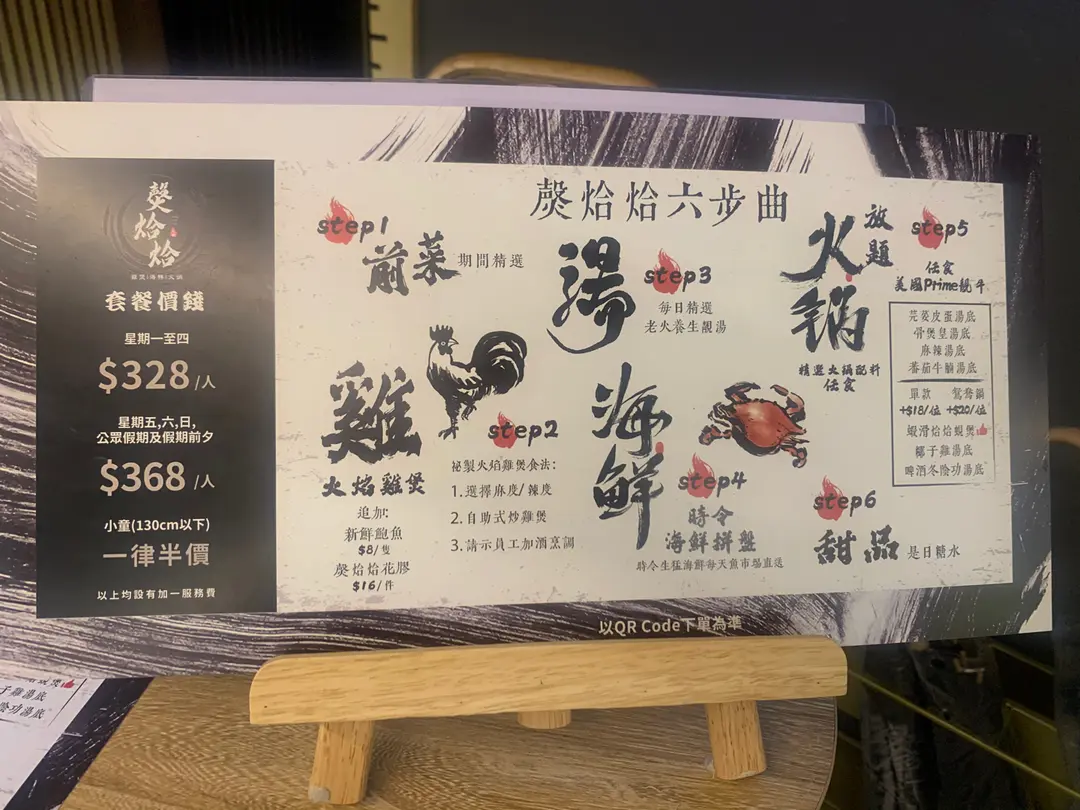 煲烚烚
套餐價錢
星期一至四
$328/人
星期五,六,日,
公眾假期及假期前夕
$368/人
小童(130cm以下)
一律半價
以上均設有加一服務費
烚烚六步曲
step1
前菜
期間精選
雞
火焰雞煲
追加:
新鮮鮑魚
$8/隻
烚烚花膠
$16/件
step2
祕製火焰雞煲食法:
1.選擇麻度/辣度
2.自助式炒雞煲
3.請示員工加酒烹調
湯
step3
每日精選
老火養生靚湯
海鮮
step4
時令
海鮮拼盤
時令生猛海鮮每天魚市場直送
火锅
放題
精選火鍋配料
任食
step5
任食
美國Prime靚牛
芫荽皮蛋湯底
骨煲皇湯底
麻辣湯底
蕃茄牛腩湯底
單款 鴛鴦鍋
+$18/位 +$20/位
蝦滑烚烚蜆煲
椰子雞湯底
啤酒冬陰功湯底
step6
甜品
是日糖水
以QR Code下單為準
子雞湯底
陰功湯底